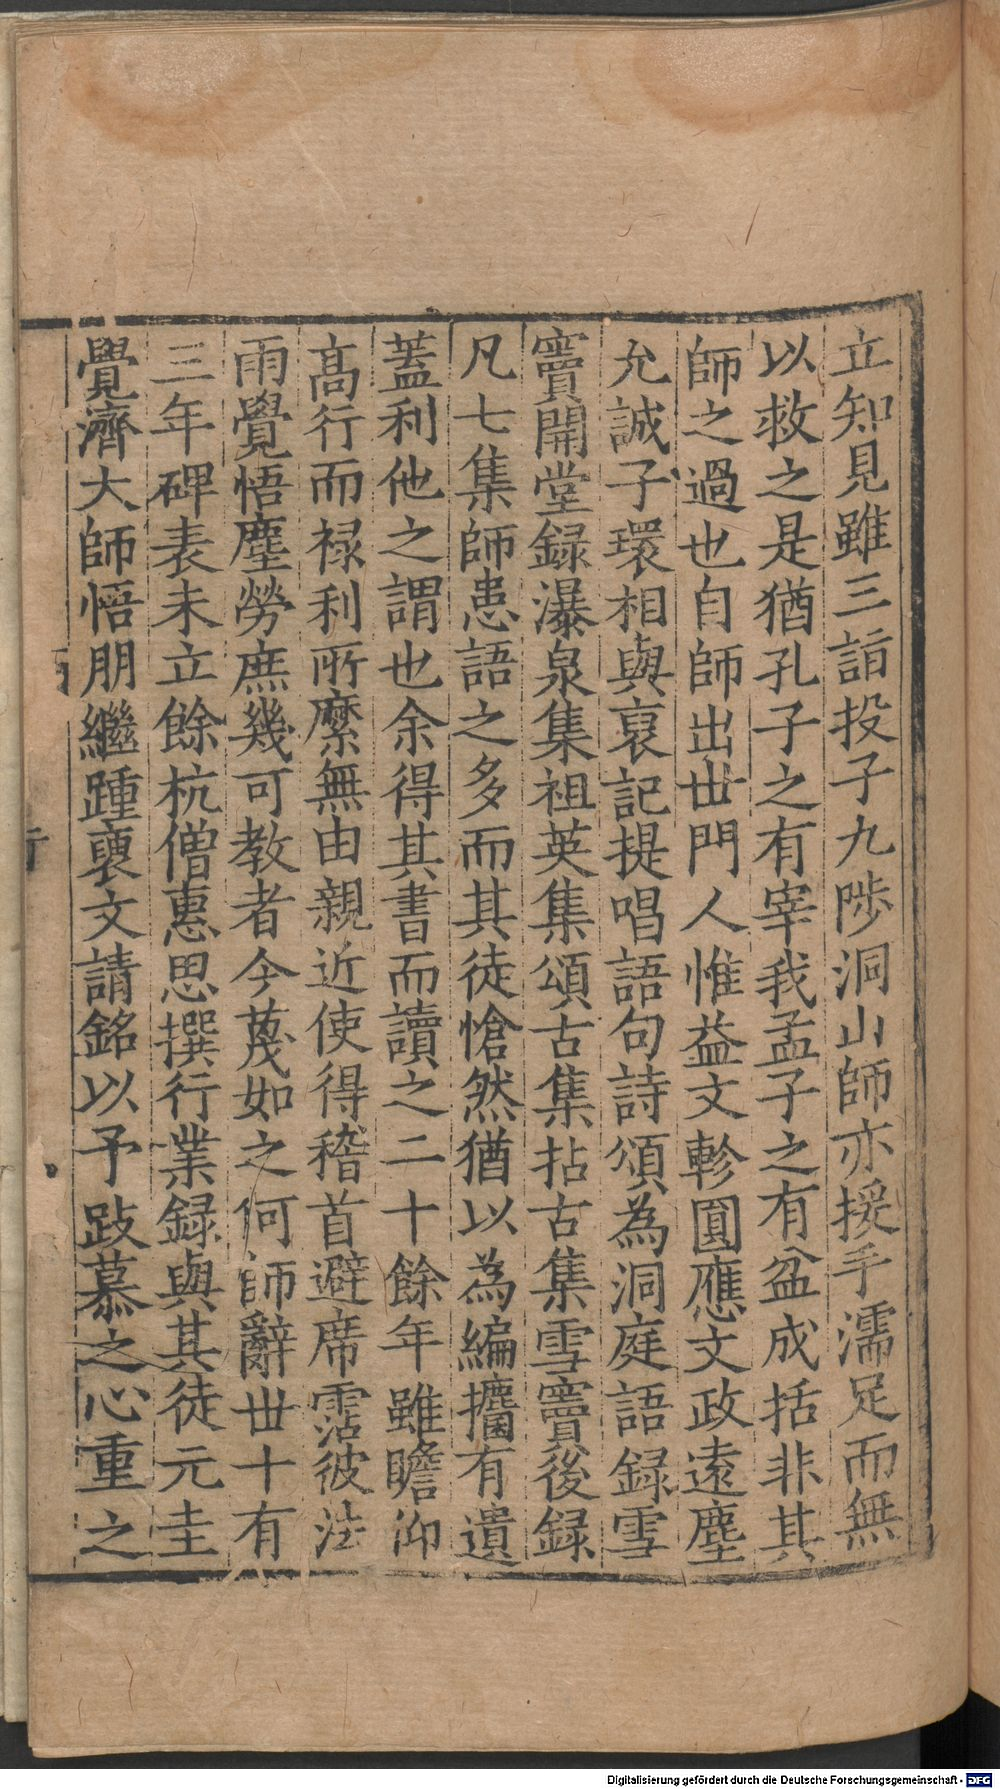 立知見雖三詣投子九陟洞山師亦援手濡足而無
以救之是猶孔子之有宰我孟子之有盆成括非其
師之過也自師出世門人惟益文軫圓應文政遠塵
允誠子環相與裒記提唱語句詩頌為洞庭語録雪
竇開堂録瀑泉集祖英集頌古集拈古集雪竇後録
凡七集師患語之多而其徒愴然猶以為編攟有遺
蓋利他之謂也余得其書而讀之二十餘年雖瞻仰
高行而禄利所縻無由親近使得稽首避席霑彼法
雨覺悟塵勞庶幾可教者今蔑如之何師辭世十有
三年碑表未立餘杭僧惠思撰行業録與其徒元圭
覺濟大師悟朋繼踵裒文請銘以予跂慕之心重之
Digitalisierung gefördert durch die Deutsche Forschungsgemeinschaft - DFG